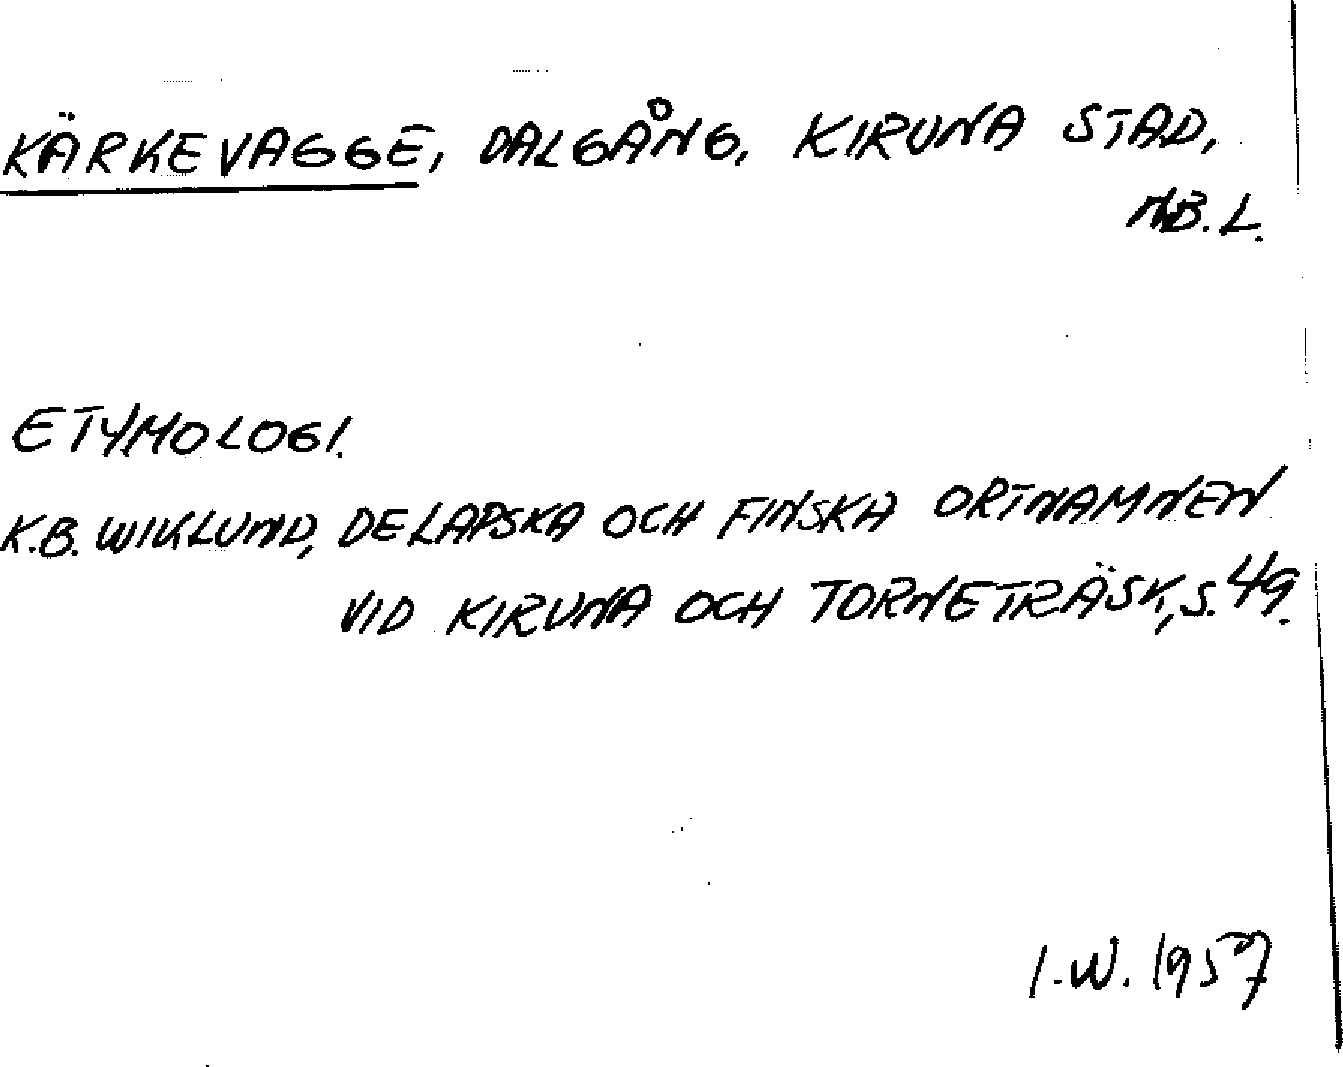 KÄRKEVAGGE, DALGÅNG, KIRUNA STAD,
NB.L.
ETYMOLOGI.
K.B. WIKLUND, DE LAPSKA OCH FINSKA ORTNAMNEN
VID KIRUNA OCH TORNETRÄSK, S. 49.
I.W. 1957